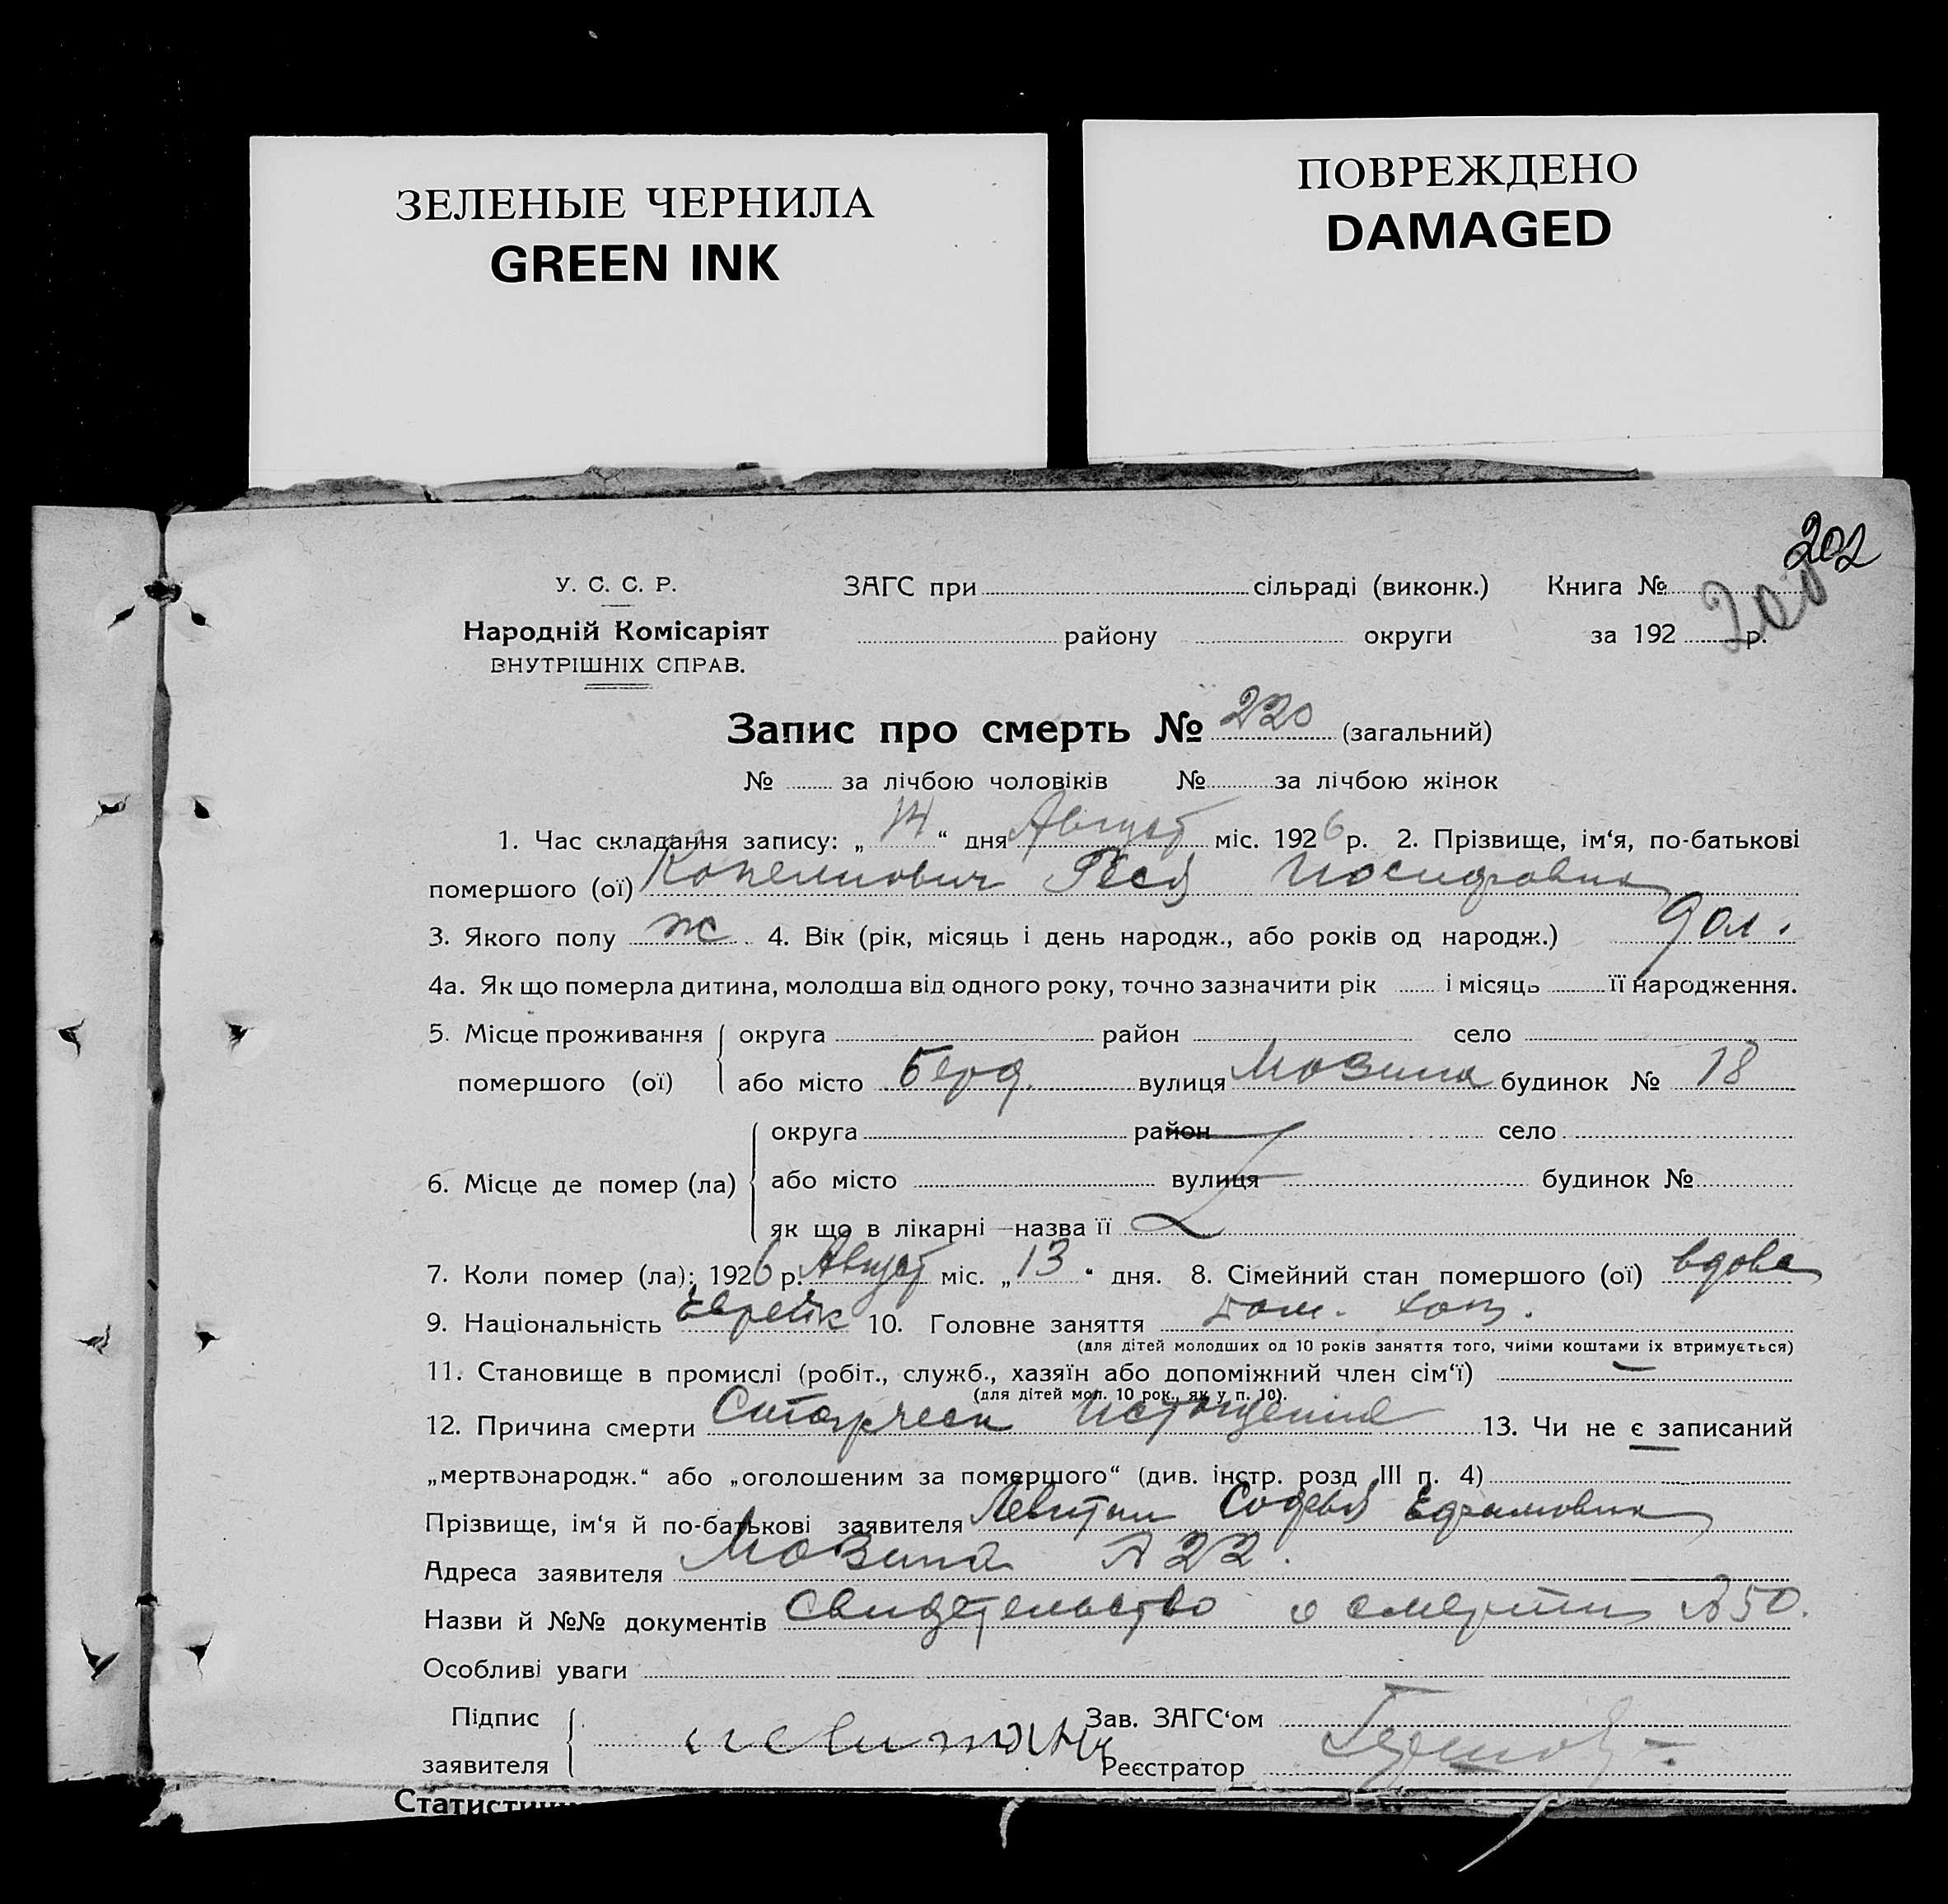 ЗЕЛЕНЫЕ ЧЕРНИЛА
GREEN INK
ПОВРЕЖДЕНО
DAMAGED
202
200
У. С. С. Р.
Народній Комісаріят
ВНУТРІШНІХ СПРАВ.
ЗАГС при сільраді (виконк.) Книга №
району округи за 192 р.
Запис про смерть № 220 (загальний)
№ за лічбою чоловіків № за лічбою жінок
1. Час складання запису: „14“ дня Август міс. 1926 р. 2. Прізвище, ім‘я, по-батькові
помершого (ої) Копелиович Реся Иосифовна
3. Якого полу ж 4. Вік (рік, місяць і день народж., або років од народж.) 90 л.
4а. Як що померла дитина, молодша від одного року, точно зазначити рік і місяць її народження.
5. Місце проживання округа район село
помершого (ої) або місто Берд. вулиця Мозина будинок № 18
округа район село
6. Місце де помер (ла) або місто вулиця будинок №
як що в лікарні—назва її
7. Коли помер (ла): 1926 р. Август міс. „13“ дня. 8. Сімейний стан помершого (ої) вдова
9. Національність Еврейк 10. Головне заняття дом. хоз.
(для дітей молодших од 10 років заняття того, чиїми коштами їх втримується)
11. Становище в промислі (робіт., служб., хазяїн або допоміжний член сім‘ї) —
(для дітей мол. 10 рок., як у п. 10).
12. Причина смерти Старческ истощение 13. Чи не є записаний
„мертвонародж.“ або „оголошеним за помершого“ (див. інстр. розд III п. 4)
Прізвище, ім‘я й по-батькові заявителя Левитан Софья Ефраимовна
Адреса заявителя Мозина № 22.
Назви й №№ документів Свидетельство о смерти № 50.
Особливі уваги
Підпис
заявителя
Левитан
Зав. ЗАГС‘ом
Реєстратор